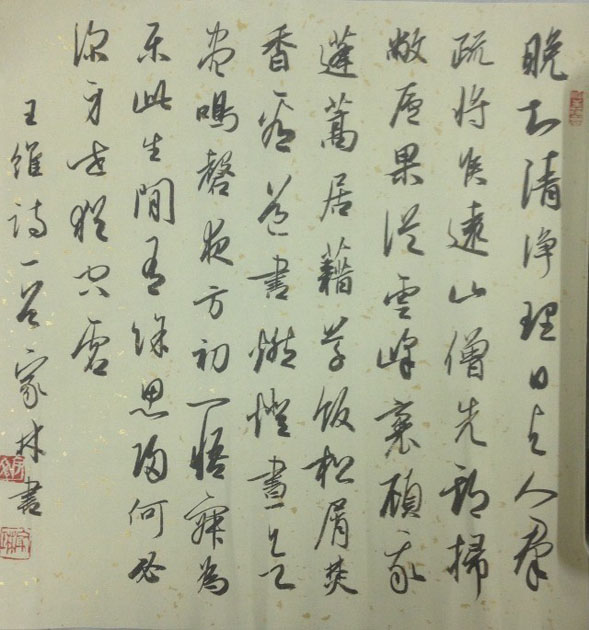 晚知清淨理日与人群
疏將候遠山僧先期掃
敝廬果從雲峰裏顧我
蓬蒿居藉草飯松屑焚
香看道書燃燈晝欲
盡鳴磬夜方初一悟寂為
樂此生閒有餘思歸何必
深身世猶空虛
王維詩一首家林書